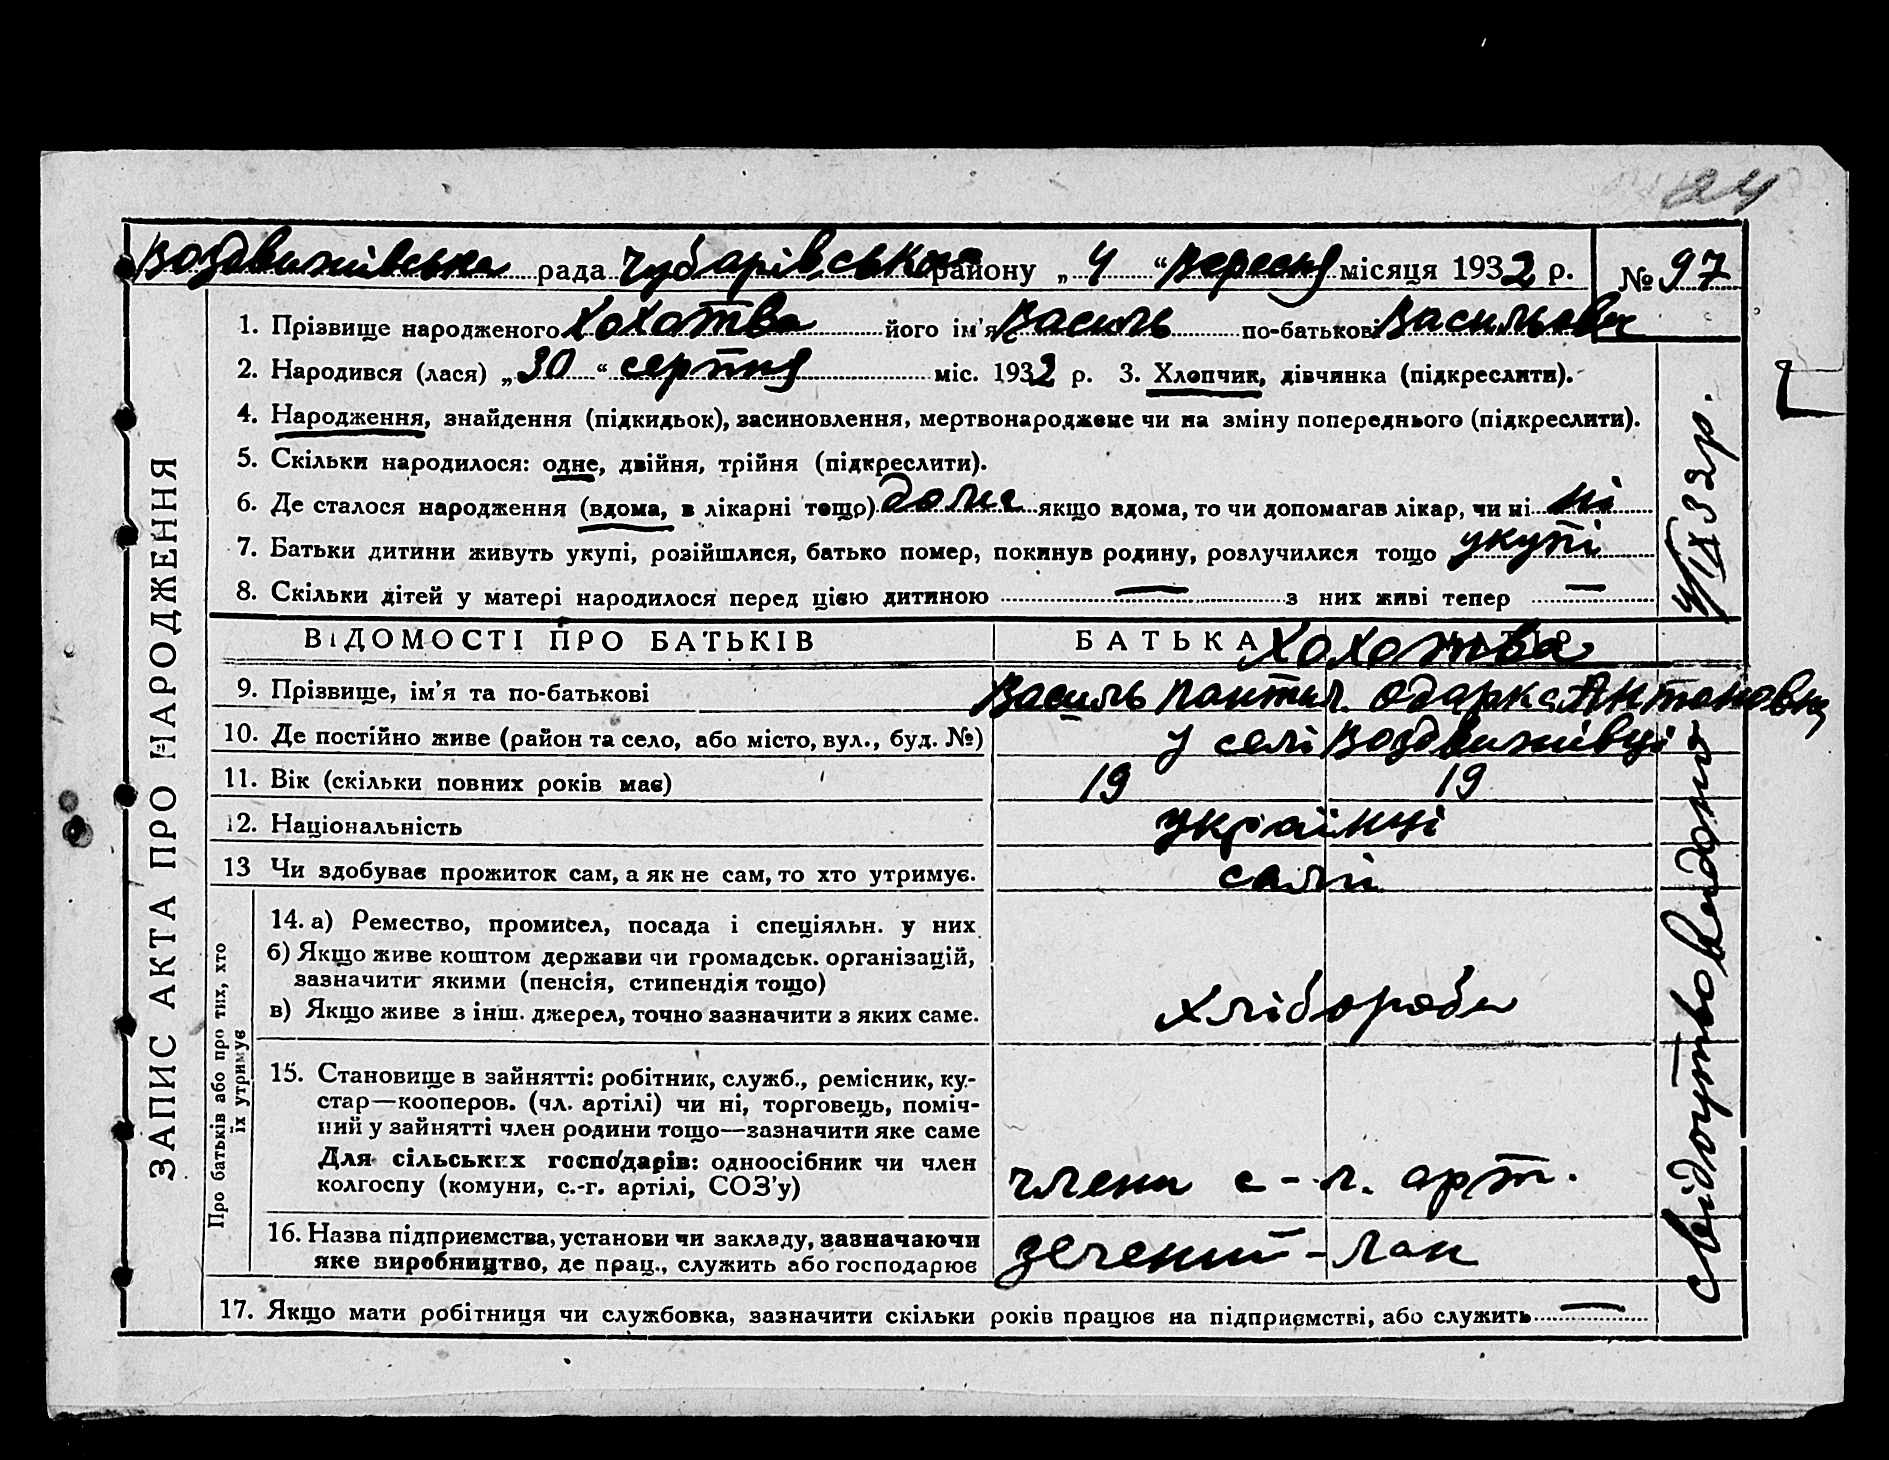 24
Воздвижівська рада Чубарівського району „ 4 “ Вересня місяця 1932 р. № 97
1. Прізвище народженого Хохотва його ім'я Василь по-батькові Васильович
2. Народився (лася) „ 30 “ серпня міс. 1932 р. 3. Хлопчик, дівчинка (підкреслити).
4. Народження, знайдення (підкидьок), засиновлення, мертвонароджене чи на зміну попереднього (підкреслити).
5. Скільки народилося: одне, двійня, трійня (підкреслити).
6. Де сталося народження (вдома, в лікарні тощо) дома якщо вдома, то чи допомагав лікар, чи ні ні
7. Батьки дитини живуть укупі, розійшлися, батько помер, покинув родину, розлучилися тощо укупі
8. Скільки дітей у матері народилося перед цією дитиною — з них живі тепер —
ВІДОМОСТІ ПРО БАТЬКІВ БАТЬКА Хохотва
9. Прізвище, ім'я та по-батькові Василь Пантил. Одарка Антоновна
10. Де постійно живе (район та село, або місто, вул., буд. №) у селі Воздвижівці
11. Вік (скільки повних років має) 19 19
12. Національність українці
13 Чи здобуває прожиток сам, а як не сам, то хто утримує. самі
Про батьків або про тих, хто їх утримує
14. а) Ремество, промисел, посада і спеціяльн. у них
б) Якщо живе коштом держави чи громадськ. організацій,
зазначити якими (пенсія, стипендія тощо)
в) Якщо живе з інш. джерел, точно зазначити з яких саме. хлібороби
15. Становище в зайнятті: робітник, служб., ремісник, ку-
стар—кооперов. (чл. артілі) чи ні, торговець, поміч-
ний у зайнятті член родини тощо—зазначити яке саме
Для сільських господарів: одноосібник чи член
колгоспу (комуни, с.-г. артілі, СОЗ'у) члени с-г. арт.
16. Назва підприємства, установи чи закладу, зазначаючи
яке виробництво, де прац., служить або господарює зечений-лан
17. Якщо мати робітниця чи службовка, зазначити скільки років працює на підприємстві, або служить —
ЗАПИС АКТА ПРО НАРОДЖЕННЯ
Свідоцтво видано
4/IX 32р.